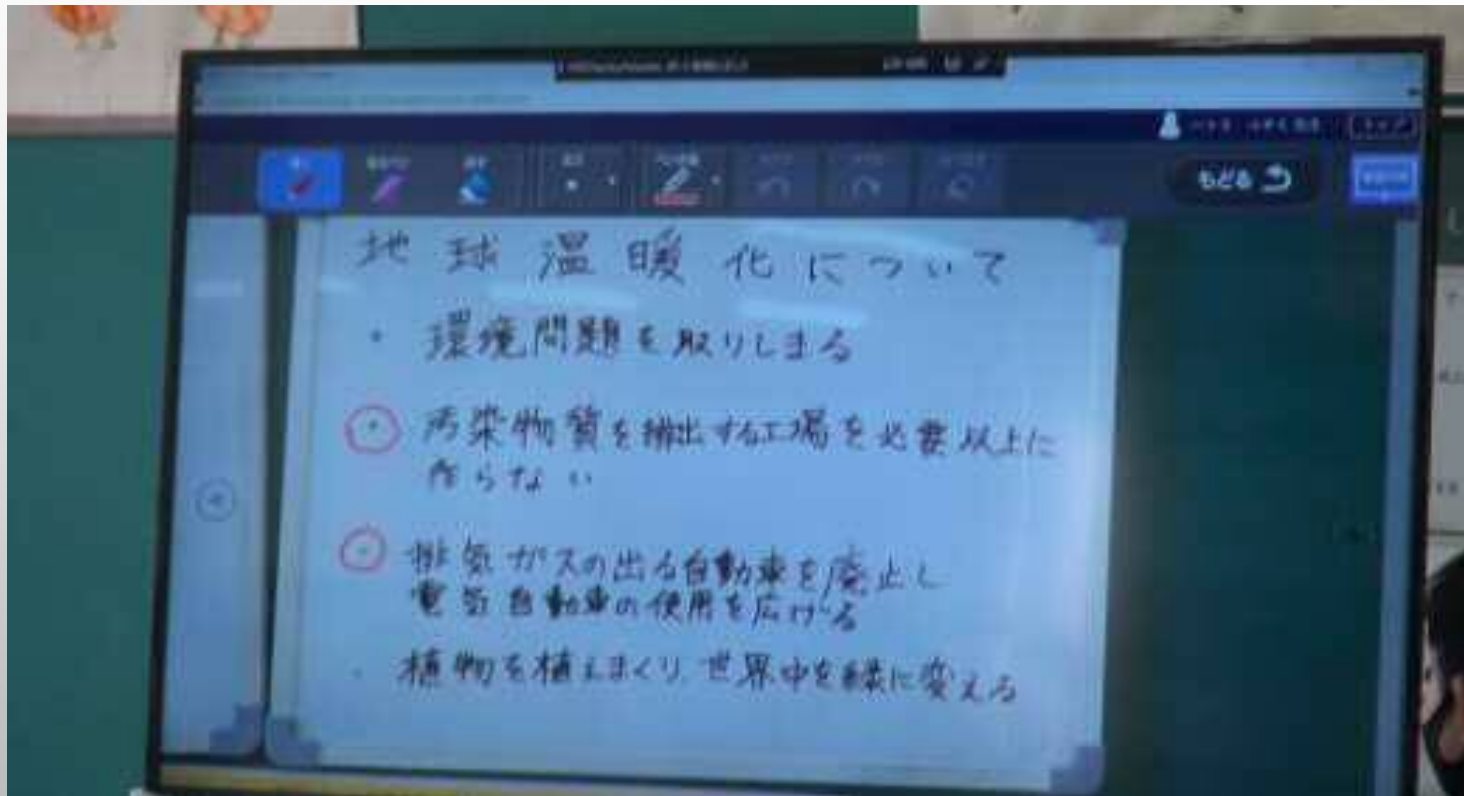 もどる
地球温暖化について
・環境問題を取りしまる
・汚染物質を排出する工場を必要以上に
作らない
・排気ガスの出る自動車を廃止し
電気自動車の使用を広げる
・植物を植えまくり世界中を緑に変える